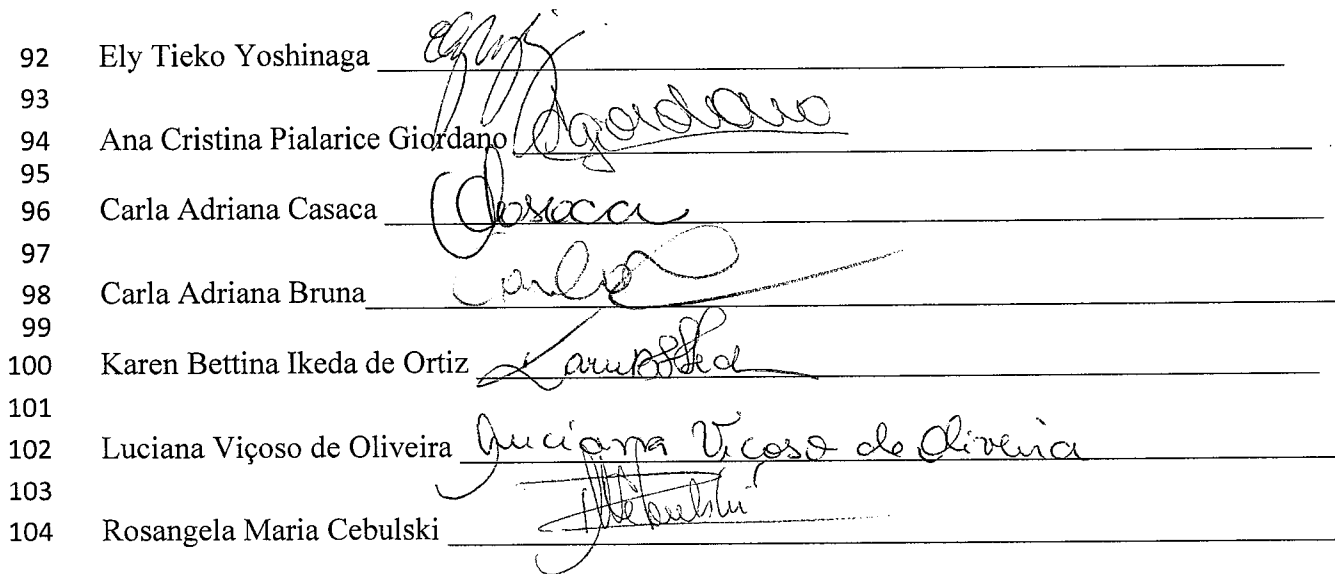 92 Ely Tieko Yoshinaga
93
94 Ana Cristina Pialarice Giordano Agiordano
95
96 Carla Adriana Casaca Casaca
97
98 Carla Adriana Bruna Carla
99
100 Karen Bettina Ikeda de Ortiz
101
102 Luciana Viçoso de Oliveira Luciana Viçoso de Oliveira
103
104 Rosangela Maria Cebulski